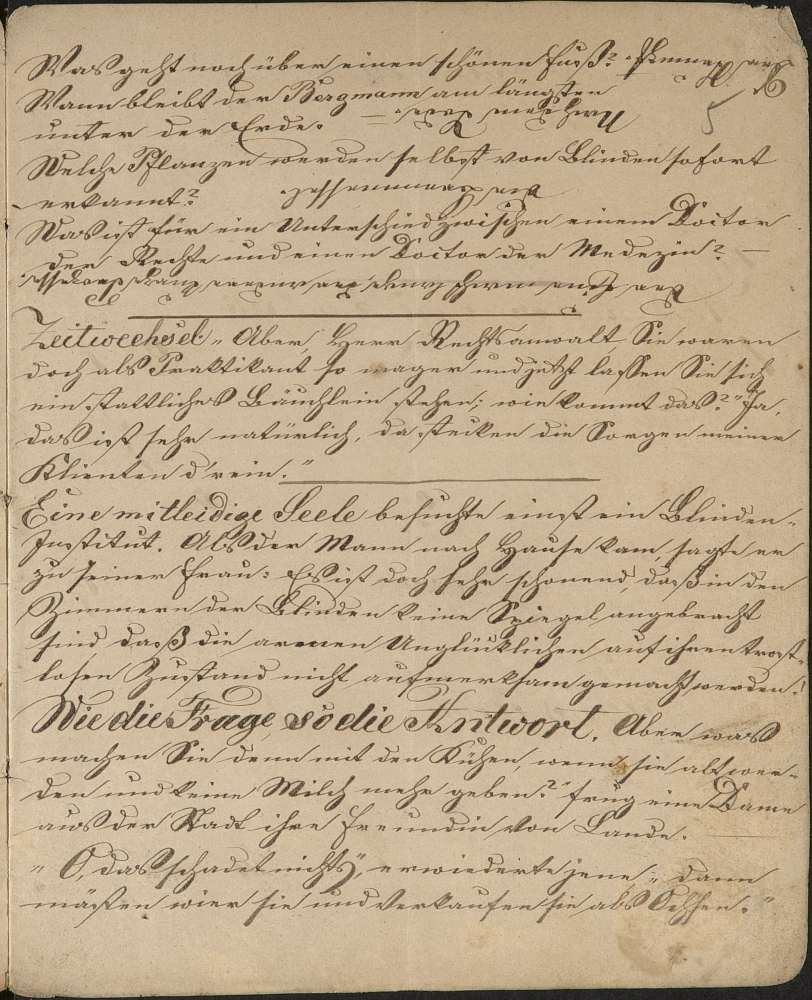 Was geht noch über einen schönen Fuß? Der Strumpf.
5
Wann bleibt der Bergmann am längsten
unter der Erde. — Nach dem Tode.
Welche Pflanzen werden selbst von Blinden sofort
erkannt? Die Brennnessel.
Was ist für ein Unterschied zwischen einem Doctor
der Rechte und einen Doctor der Medezin? —
Zeitwechsel. „Aber, Herr Rechtsanwalt Sie waren
doch als Praktikant so mager und jetzt lassen Sie sich
ein stattliches Bäuchlein stehen; wie kommt das?" „Ja,
das ist sehr natürlich, da stecken die Sorgen meiner
Klienten d'rein."
Eine mitleidige Seele besuchte einst ein Blinden-
Institut. Als der Mann nach Hause kam sagte er
zu seiner Frau: Es ist doch sehr schonend, daß in den
Zimmern der Blinden keine Spiegel angebracht
sind daß die armen Unglücklichen auf ihren trost-
losen Zustand nicht aufmerksam gemacht werden!
Wie die Frage so die Antwort. Aber was
machen Sie denn mit den Kühen, wenn sie alt wer-
den und keine Milch mehr geben?" frug eine Dame
aus der Stadt ihre Freundin von Lande.
„O, das schadet nichts", erwiederte jene: „dann
mästen wier sie und verkaufen sie als Ochsen."